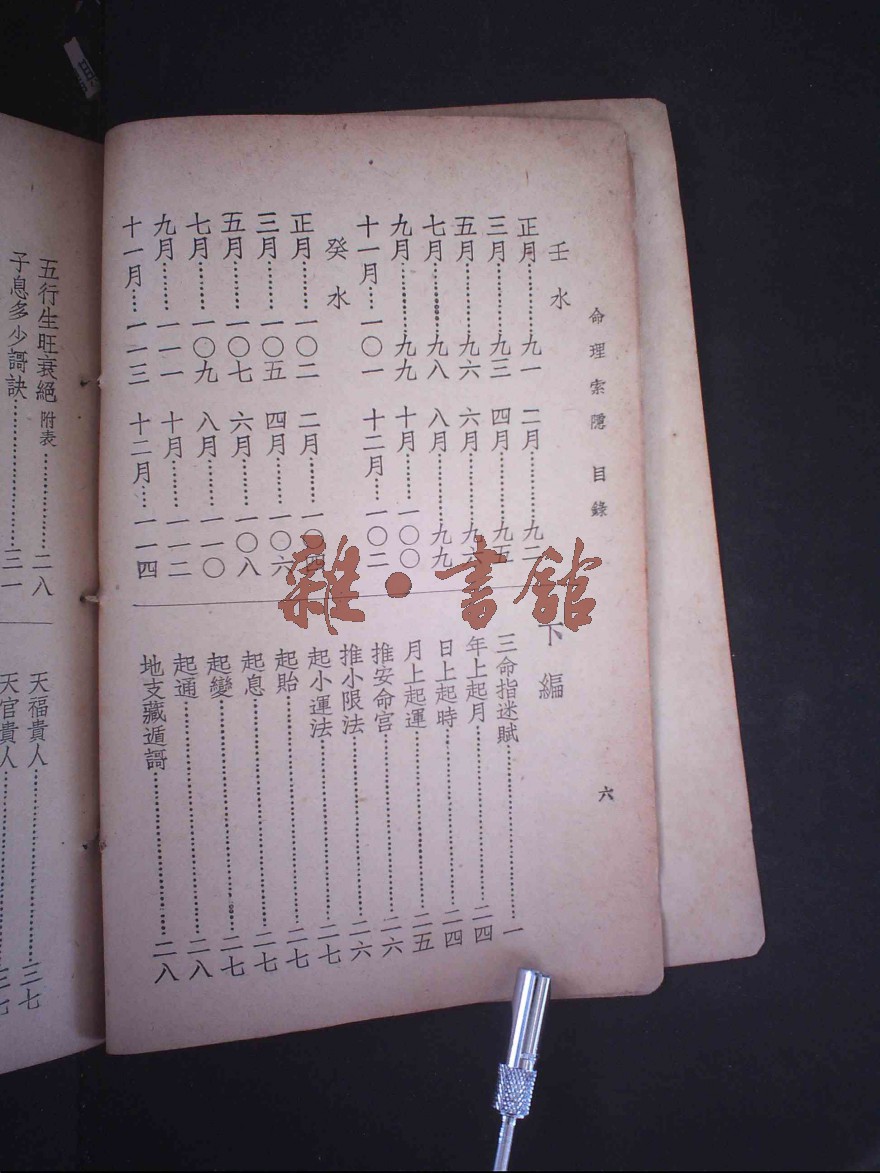 命理索隱 目錄 六
壬水
正月……九一 二月……九二
三月……九三 四月……九五
五月……九六 六月……九六
七月……九八 八月……九九
九月……九九 十月……一〇〇
十一月……一〇一 十二月……一〇二
癸水
正月……一〇二 二月……一〇四
三月……一〇五 四月……一〇六
五月……一〇七 六月……一〇八
七月……一〇九 八月……一一〇
九月……一一一 十月……一一二
十一月……一一三 十二月……一一四
下編
三命指迷賦……一
年上起月……二四
日上起時……二四
月上起運……二五
推安命宮……二六
推小限法……二六
起小運法……二七
起貽……二七
起息……二七
起變……二七
起通……二八
地支藏遁謌……二八
五行生旺衰絕 附表……二八
子息多少謌訣……三一
天福貴人……三七
天官貴人……三七
雜·書館